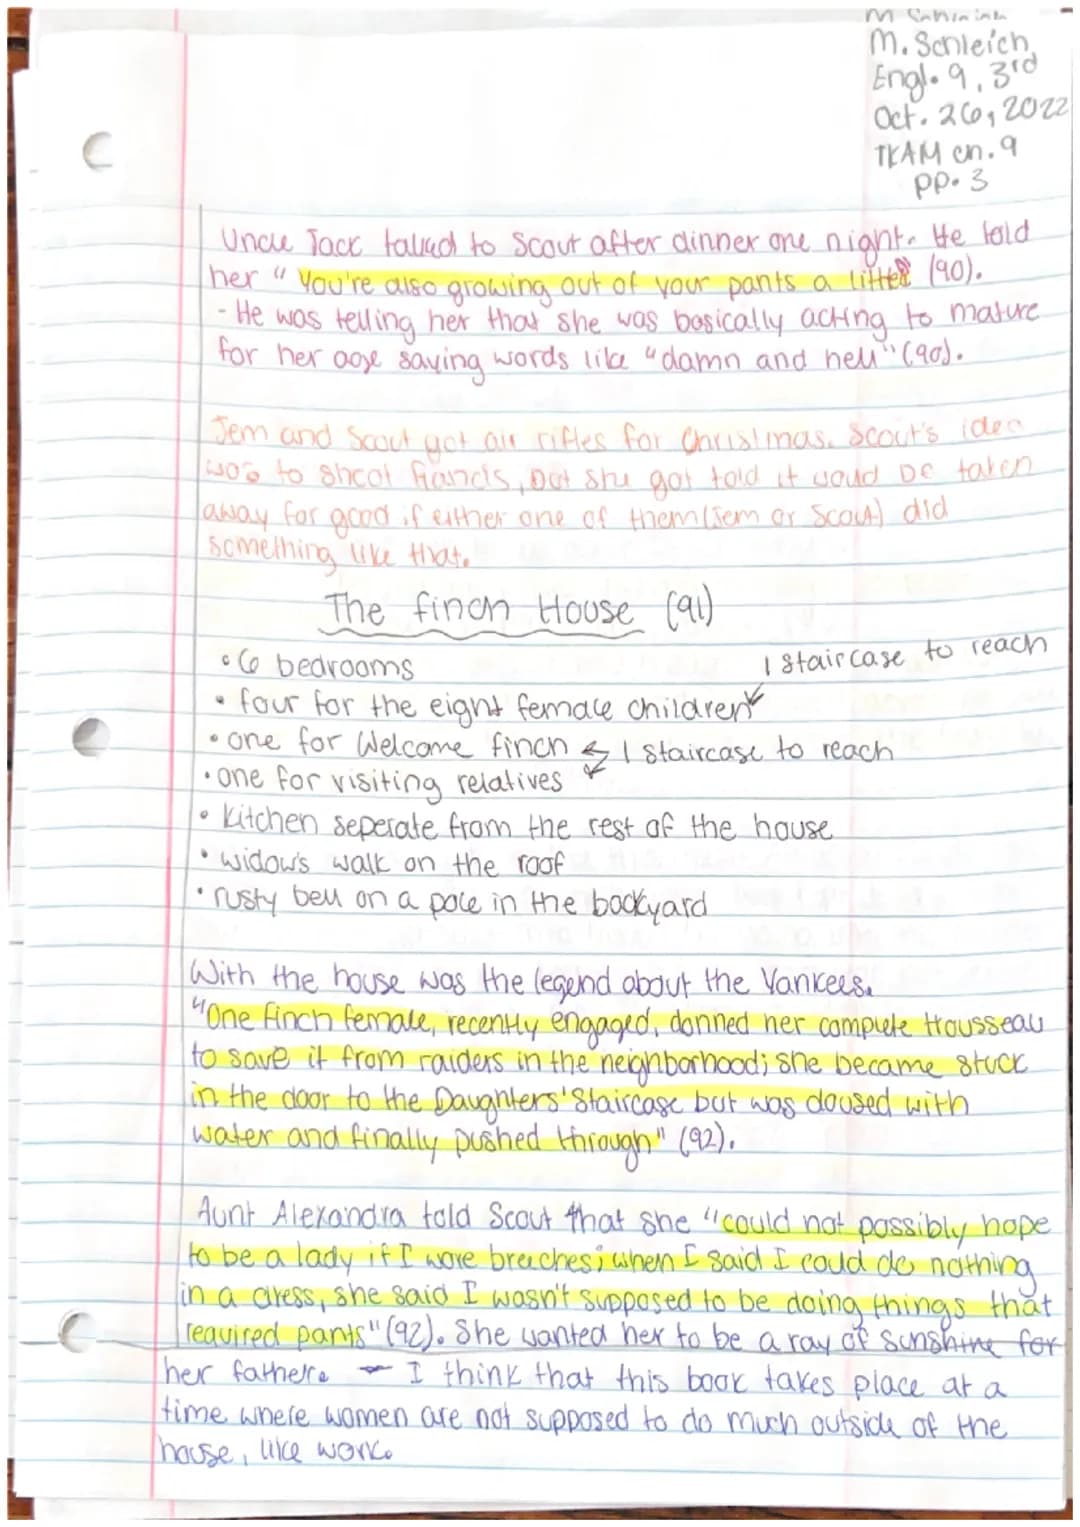 M. Schleich
Engl. 9, 3rd
Oct. 26, 2022
TKAM ch. 9
pp. 3
Uncle Jack talked to Scout after dinner one night. He told
her "You're also growing out of your pants a little" (90).
- He was telling her that she was basically acting to mature
for her age saying words like "damn and hell" (90).
Jem and Scout got air rifles for Christmas. Scout's idea
was to shoot Francis, but she got told it would be taken
away for good if either one of them (Jem or Scout) did
something like that.
The finch House (91)
• 6 bedrooms
1 staircase to reach
• four for the eight female children
• one for Welcome finch 1 staircase to reach
• one for visiting relatives
• kitchen seperate from the rest of the house
• widow's walk on the roof
• rusty bell on a pole in the backyard
With the house was the legend about the Yankees.
"One finch female, recently engaged, donned her complete trousseau
to save it from raiders in the neighborhood; she became stuck
in the door to the Daughters' Staircase but was doused with
water and finally pushed through" (92).
Aunt Alexandra told Scout that she "could not possibly hope
to be a lady if I wore breeches; when I said I could do nothing
in a dress, she said I wasn't supposed to be doing things that
required pants" (92). She wanted her to be a ray of sunshine for
her father. - I think that this book takes place at a
time where women are not supposed to do much outside of the
house, like work.